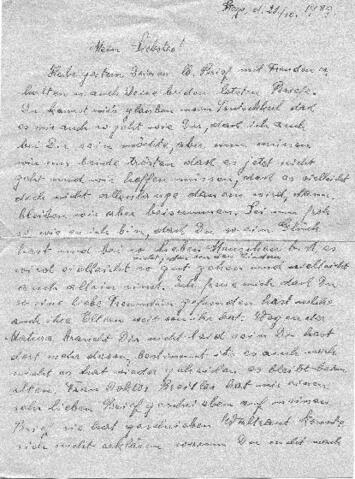 Prag, d. 21/10. 1939
Mein Liebstes!
Habe gestern Deinen lb. Brief mit Freuden er
halten u. auch Deine beiden letzten Briefe.
Du kannst mir's glauben mein daß
es mir auch so geht wie Dir, daß ich auch
bei Dir sein möchte, aber nun müssen
wir uns beide trösten daß es jetzt nicht
geht und wir hoffen müssen, daß es vielleicht
doch nicht allzulange dauern wird, dann
bleiben wir aber beisammen. Sei nun froh
so wie ich es bin, daß Du so ein Glück
hast und bei so lieben bist, es
wird vielleicht so gut gehen und vielleicht
auch allein sind. Ich freue mich daß Du
so eine liebe Freundin gefunden hast welche
auch ihre Eltern weit hat. Wegen der
Matura braucht Dir nicht leid sein Du hast
dort mehr davon, bestimmt ist es auch noch
nicht es hat wieder geheißen es bleibt beim
alten. Frau Doktor hat mir einen
sehr lieben Brief geschrieben auf meinen
Brief sie hat geschrieben Waltraut konnte
sich nicht erklären warum Du nicht nach